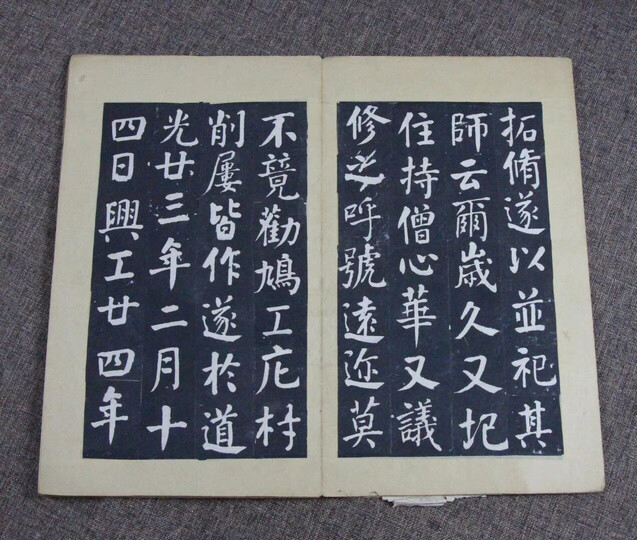 拓脩遂以並祀其
師云爾歲久又圮
住持僧心華又議
修之呼號遠近莫
不竟勸鳩工庀材
削屢皆作遂於道
光廿三年二月十
四日興工廿四年